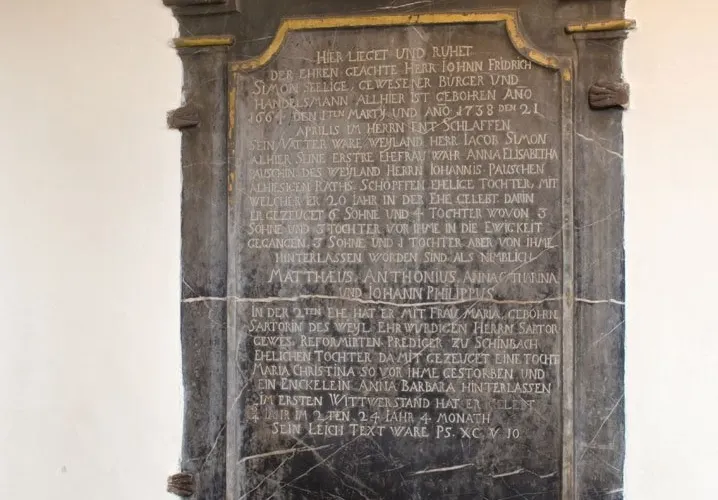 HIER LIEGET UND RUHET
DER EHREN GEACHTE HERR IOHNN FRIDRICH
SIMON SEELIGE, GEWESENER BURGER UND
HANDELSMANN ALLHIER IST GEBOHREN ANO
1664 DEN 1TEN MARTY UND ANO 1738 DEN 21
APRILIS IM HERRN ENT SCHLAFFEN
SEIN VATTER WARE WEYLAND HERR IACOB SIMON
ALHIER SEINE ERSTRE EHEFRAU WAHR ANNA ELISABETHA
PAUSCHIN DES WEYLAND HERRN IOHANNIS PAUSCHEN
ALHIESIGEN RATHS SCHÖPFFEN EHELICE TOCHTER, MIT
WELCHER ER 20 IAHR IN DER EHE GELEBT DARIN
ER GEZEUGET 6 SOHNE UND 4 TOCHTER WOVON 3
SOHNE UND 3 TOCHTER VOR IHME IN DIE EWIGKEIT
GEGANGEN, 3 SOHNE UND 1 TOCHTER ABER VON IHME
HINTERLASSEN WORDEN SIND ALS NEMBLICH
MATTHAEUS, ANTHONIUS, ANNA CATHARINA
UND IOHANN PHILIPPUS
IN DER 2TEN EHE HAT ER MIT FRAU MARIA, GEBOHRN
SARTORIN DES WEYL EHRWURDIGEN HERRN SARTOR
GEWES. REFORMIRTEN PREDIGER ZU SCHINBACH
EHELICHEN TOCHTER DAMIT GEZEUGET EINE TOCHT
MARIA CHRISTINA SO VOR IHME GESTORBEN UND
EIN ENCKELEIN ANNA BARBARA HINTERLASSEN
IM ERSTEN WITTWERSTAND HAT ER GELEBT
IAHR IM 2TEN 24 IAHR 4 MONATH
SEIN LEICH TEXT WARE PS. XC. V 10